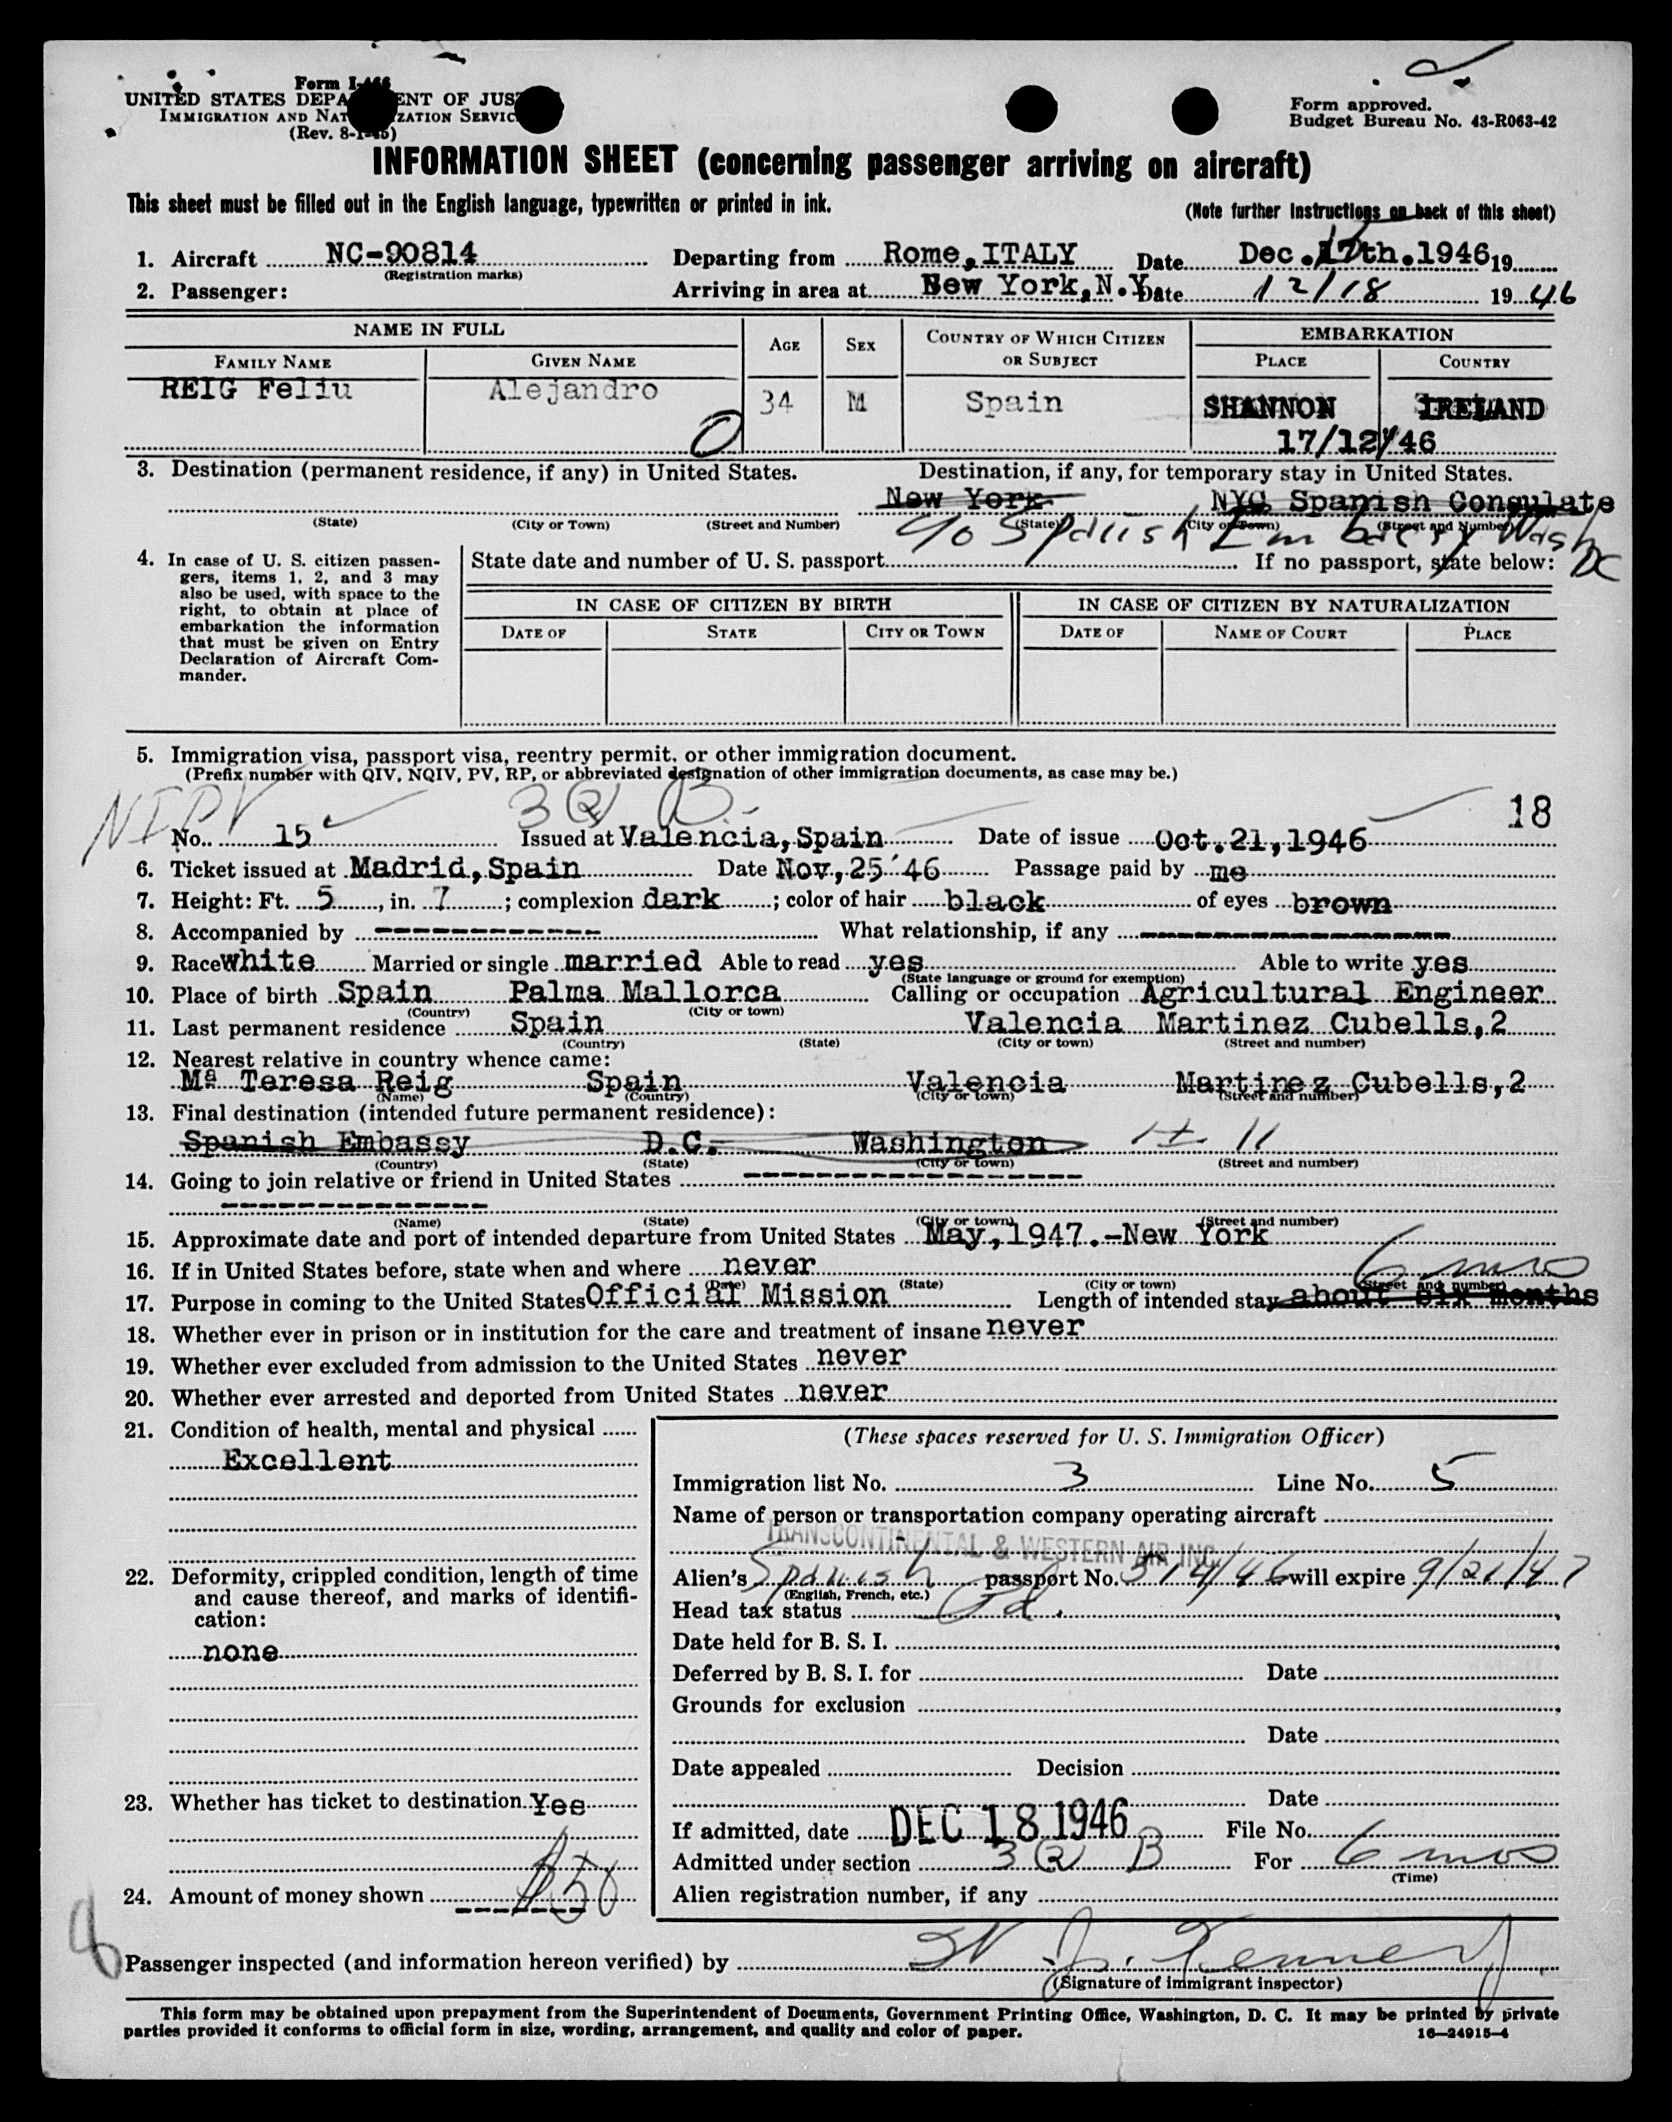 Form I-466
UNITED STATES DEPARTMENT OF JUSTICE
IMMIGRATION AND NATURALIZATION SERVICE
(Rev. 8-1-45)
Form approved.
Budget Bureau No. 43-R063-42
INFORMATION SHEET (concerning passenger arriving on aircraft)
This sheet must be filled out in the English language, typewritten or printed in ink.
(Note further Instructions on back of this sheet)
1. Aircraft NC-90814 Departing from Rome, ITALY Date Dec. 17th. 1946 19
(Registration marks)
2. Passenger: Arriving in area at New York, N.Y. Date 12/18 1946
NAME IN FULL AGE SEX COUNTRY OF WHICH CITIZEN OR SUBJECT EMBARKATION
FAMILY NAME GIVEN NAME PLACE COUNTRY
REIG Feliu Alejandro 34 M Spain SHANNON IRELAND
0 17/12/46
3. Destination (permanent residence, if any) in United States. Destination, if any, for temporary stay in United States.
New York NYC Spanish Consulate
(State) (City or Town) (Street and Number) (State) (City or Town) (Street and Number)
c/o Spanish Embassy Wash DC
4. In case of U. S. citizen passengers, items 1, 2, and 3 may also be used, with space to the right, to obtain at place of embarkation the information that must be given on Entry Declaration of Aircraft Commander.
State date and number of U. S. passport If no passport, state below:
IN CASE OF CITIZEN BY BIRTH IN CASE OF CITIZEN BY NATURALIZATION
DATE OF STATE CITY OR TOWN DATE OF NAME OF COURT PLACE
5. Immigration visa, passport visa, reentry permit, or other immigration document.
(Prefix number with QIV, NQIV, PV, RP, or abbreviated designation of other immigration documents, as case may be.)
NIPV 3(2) B 18
No. 15 Issued at Valencia, Spain Date of issue Oct. 21, 1946
6. Ticket issued at Madrid, Spain Date Nov, 25'46 Passage paid by me
7. Height: Ft. 5, in. 7; complexion dark; color of hair black of eyes brown
8. Accompanied by ------------- What relationship, if any ----------------
9. Race white Married or single married Able to read yes Able to write yes
(State language or ground for exemption)
10. Place of birth Spain Palma Mallorca Calling or occupation Agricultural Engineer
(Country) (City or town)
11. Last permanent residence Spain Valencia Martinez Cubells, 2
(Country) (State) (City or town) (Street and number)
12. Nearest relative in country whence came:
Mª Teresa Reig Spain Valencia Martinez Cubells, 2
(Name) (Country) (City or town) (Street and number)
13. Final destination (intended future permanent residence):
Spanish Embassy D.C. Washington
(Country) (State) (City or town) (Street and number)
14. Going to join relative or friend in United States -----------------
--------------
(Name) (State) (City or town) (Street and number)
15. Approximate date and port of intended departure from United States May, 1947.-New York
16. If in United States before, state when and where never
(Date) (State) (City or town) (Street and number)
6 mos
17. Purpose in coming to the United States Official Mission Length of intended stay about six months
18. Whether ever in prison or in institution for the care and treatment of insane never
19. Whether ever excluded from admission to the United States never
20. Whether ever arrested and deported from United States never
21. Condition of health, mental and physical
Excellent
22. Deformity, crippled condition, length of time and cause thereof, and marks of identification:
none
23. Whether has ticket to destination Yes
24. Amount of money shown $50
(These spaces reserved for U. S. Immigration Officer)
Immigration list No. 3 Line No. 5
Name of person or transportation company operating aircraft
TRANSCONTINENTAL & WESTERN AIR INC.
Alien's Spanish passport No. 514/46 will expire 9/21/47
(English, French, etc.)
Head tax status Pd.
Date held for B. S. I.
Deferred by B. S. I. for Date
Grounds for exclusion
Date
Date appealed Decision
Date
If admitted, date DEC 18 1946 File No.
Admitted under section 3(2) B For 6 mos
(Time)
Alien registration number, if any
Passenger inspected (and information hereon verified) by
(Signature of immigrant inspector)
This form may be obtained upon prepayment from the Superintendent of Documents, Government Printing Office, Washington, D. C. It may be printed by private
parties provided it conforms to official form in size, wording, arrangement, and quality and color of paper. 16—24915-4